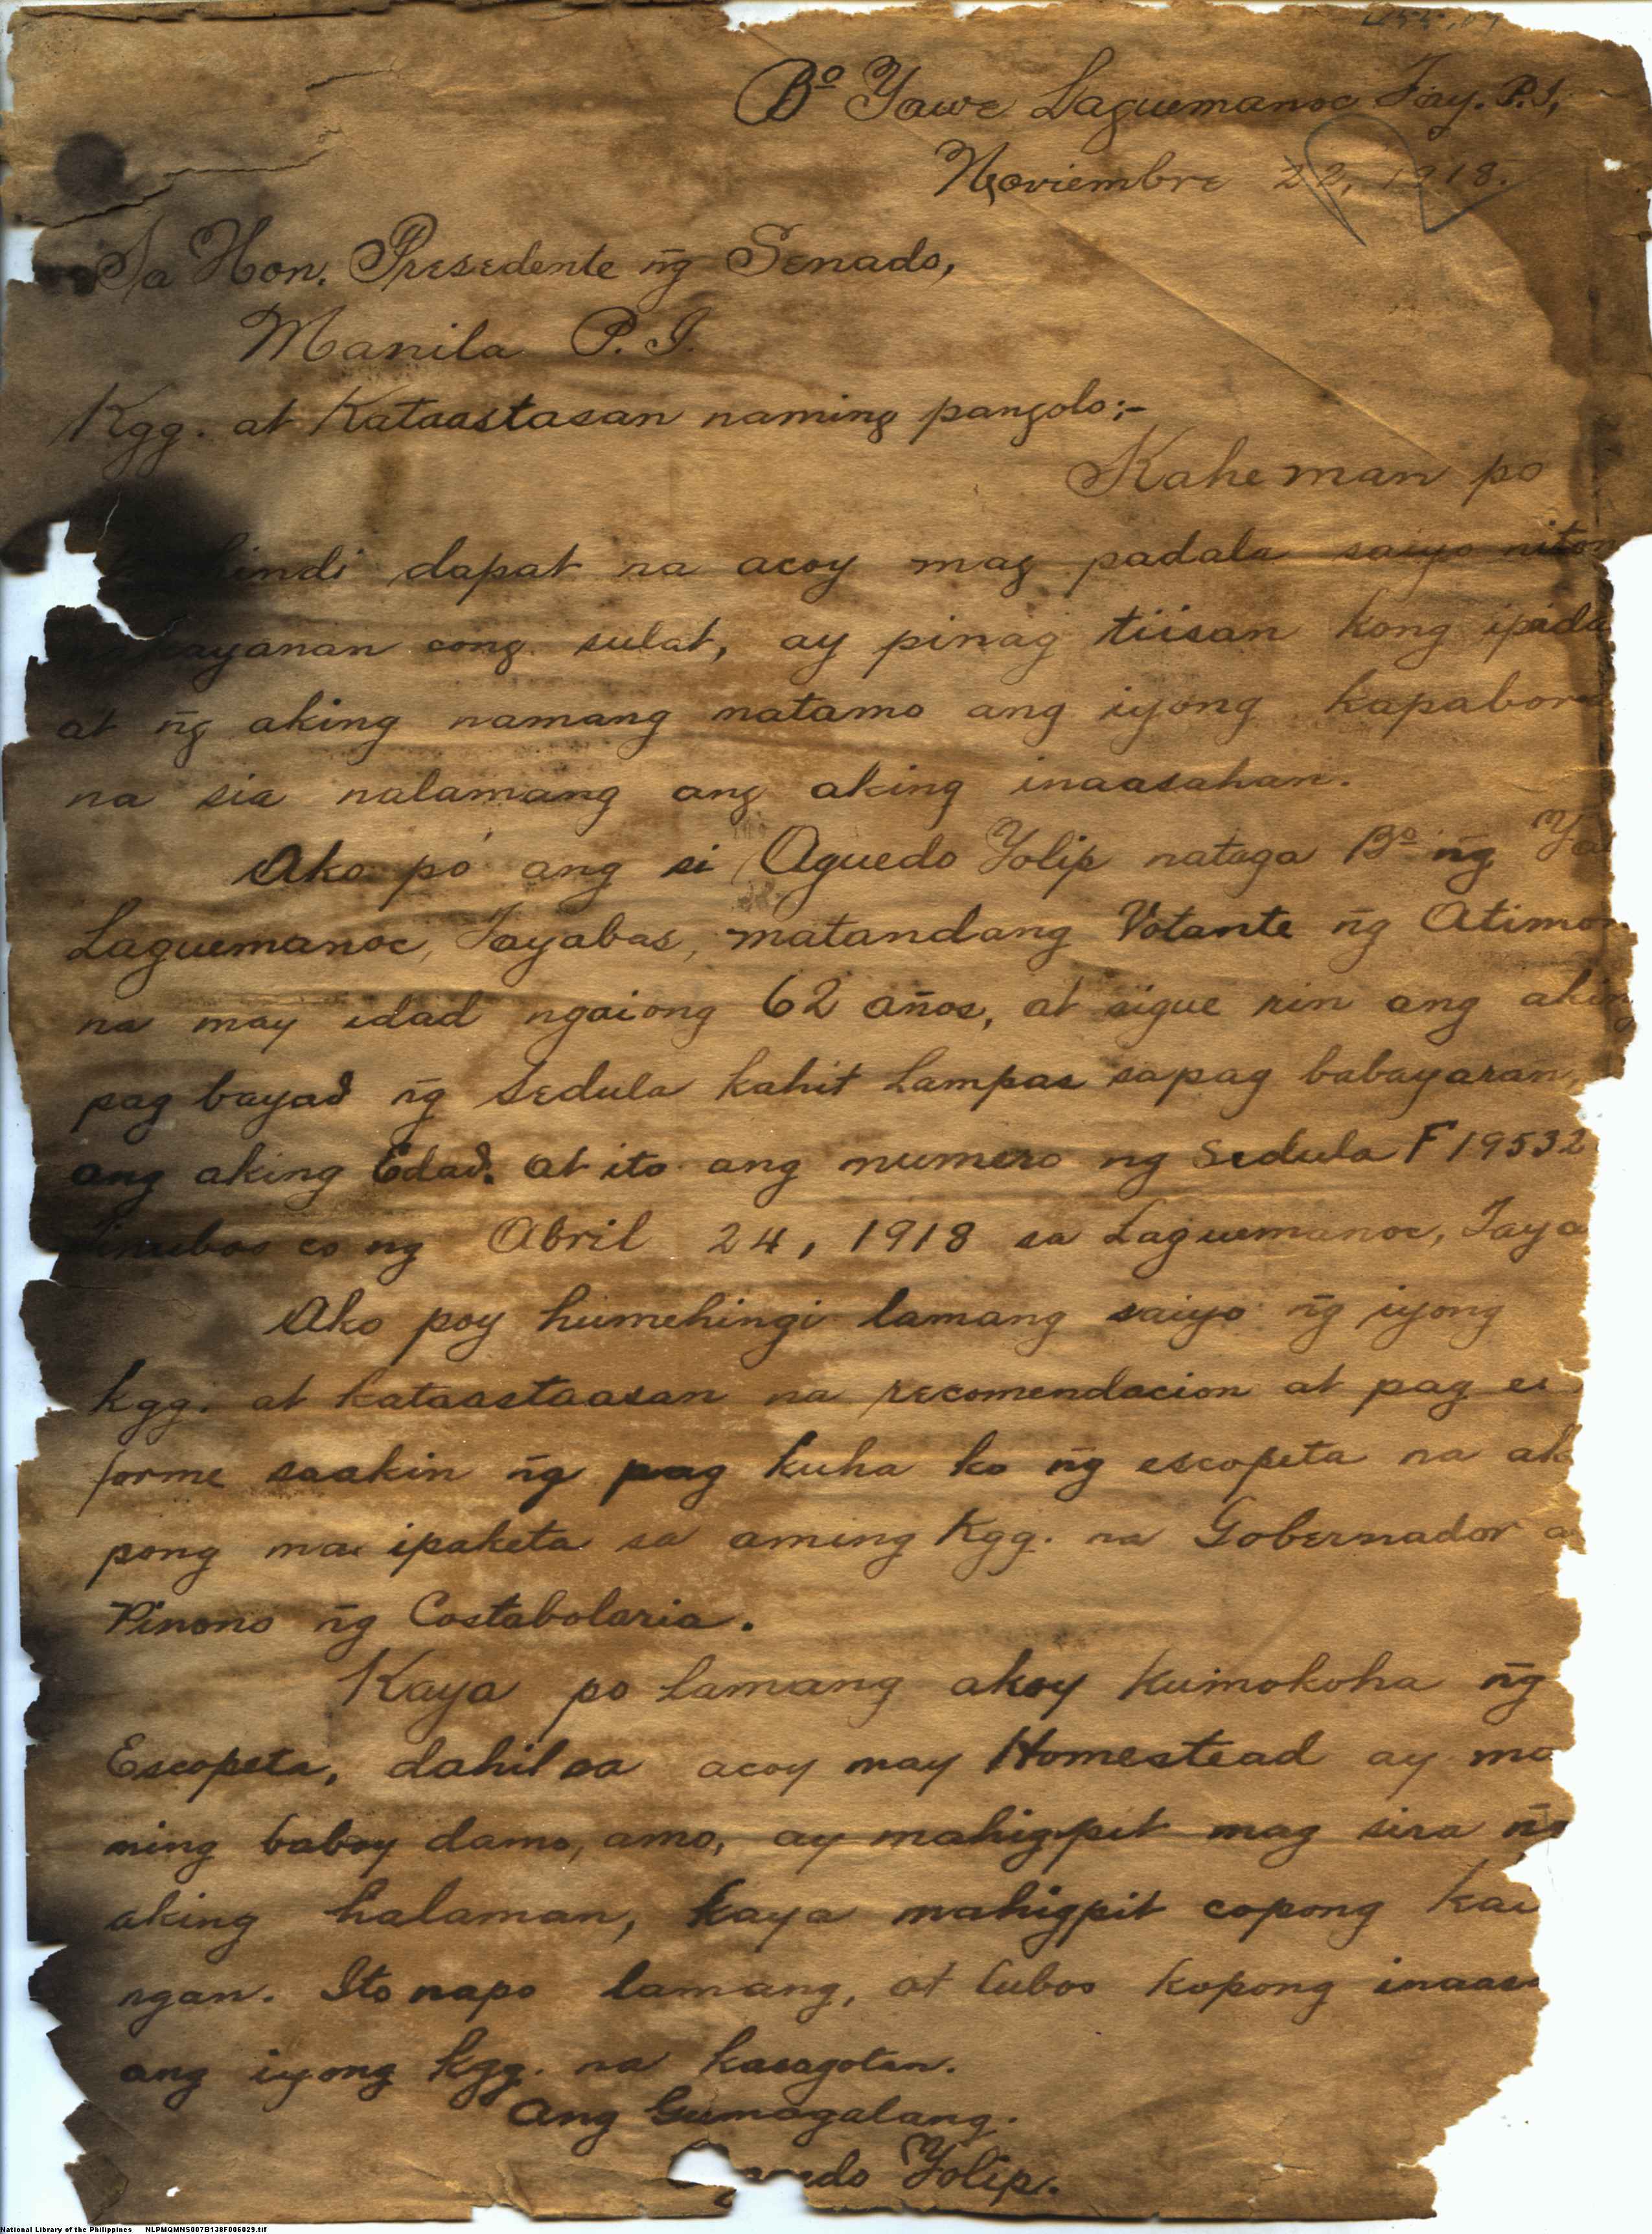 Bº Yawe Laguemanoc Tay. P.I,
Noviembre 22, 1918.
Sa Hon. Presedente ñg Senado,
Manila P. I.
Kgg. at Kataastasan naming pangolo:-
Kahe man po
hindi dapat na acoy mag padala saiyo niton
cong sulat, ay pinag tiisan kong ipada
at ñg aking namang natamo ang iyong kapabora
na sia nalamang ang aking inaasahan.
Ako po ang si Aguedo Yolip nataga Bº ñg Ya
Laguemanoc, Tayabas, matandang Votante ñg Atimon
na may edad ngaiong 62 años, at sigue rin ang aking
pag bayad ñg Sedula kahit Lampas sapag babayaran,
ang aking Edad. at ito ang numero ng Sedula F19532
tinubos co ng Abril 24, 1918 sa Laguemanoc, Taya
Ako poy humehingi lamang saiyo ñg iyong
kgg. at kataastaasan na recomendacion at pag es
forme saakin ñg pag kuha ko ñg escopeta na ak
pong ma ipaketa sa aming Kgg. na Gobernador a
Pinono ñg Costabolaria.
Kaya po lamang akoy kumokoha ñg
Escopeta, dahil sa acoy may Homestead ay ma
ning baboy damo, amo, ay mahigpit mag sira ñg
aking halaman, kaya mahigpit copong kai
ngan. Ito napo lamang, at lubos kopong inaas
ang iyong kgg. na kasagotan.
Ang Gumagalang.
Aguedo Yolip.
National Library of the Philippines NLPMQMNS007B138F006029.tif